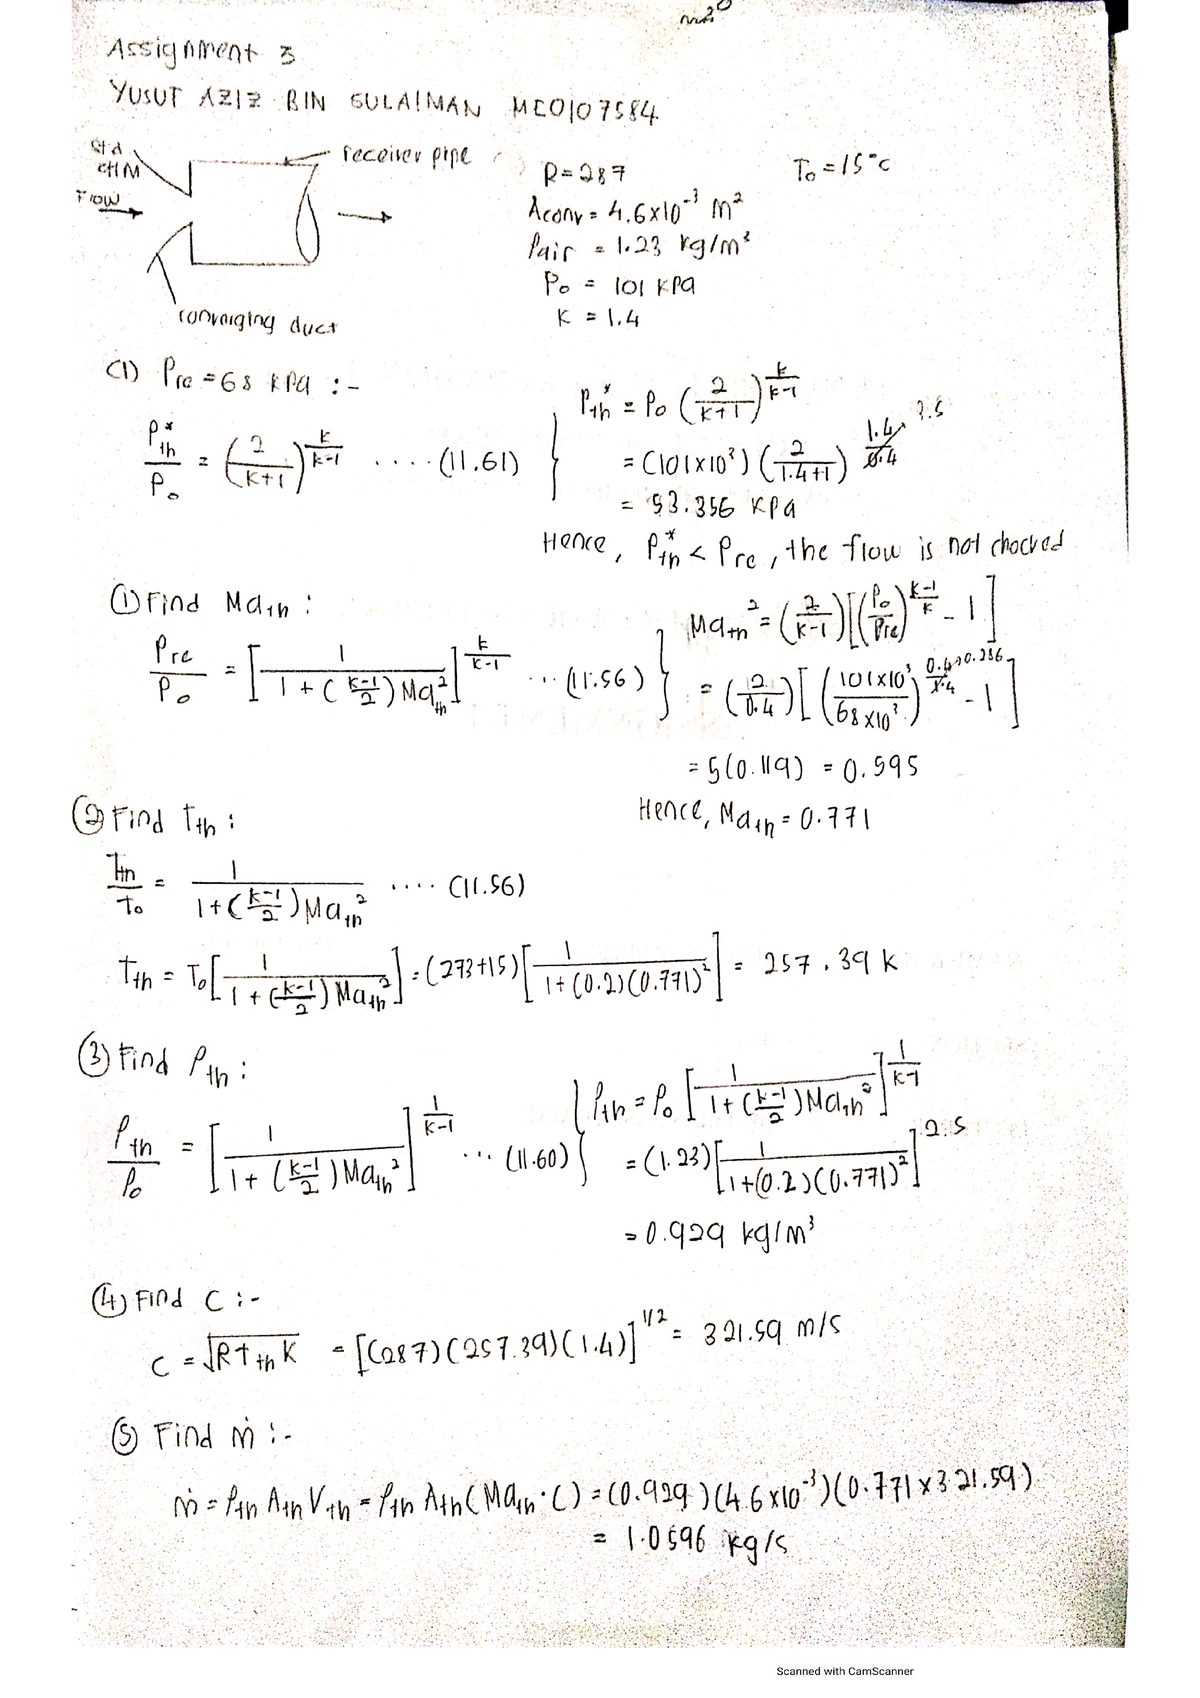 Assignment 3
YUSUF AZIZ BIN SULAIMAN ME0107584
std
atm
Flow
receiver pipe
converging duct
R = 287
T₀ = 15°C
Aconv = 4.6×10⁻³ m²
ρair = 1.23 kg/m³
P₀ = 101 kPa
K = 1.4
(1) Pre = 68 kPa :-
P*th/P₀ = (2/(k+1))^(k/(k-1)) .... (11.61)
P*th = P₀ (2/(k+1))^(k/(k-1))
= (101×10³) (2/(1.4+1))^(1.4/0.4) 3.5
= 53.356 kPa
Hence, P*th < Pre, the flow is not chocked
① Find Math :
Pre/P₀ = [1/(1+((k-1)/2)Math²)]^(k/(k-1)) ... (11.56)
Math² = (2/(k-1))[(P₀/Pre)^((k-1)/k) - 1]
= (2/0.4)[(101×10³/68×10³)^(0.4/1.4) 0.286 - 1]
= 5(0.119) = 0.595
Hence, Math = 0.771
② Find Tth :
Tth/T₀ = 1/(1+((k-1)/2)Math²) .... (11.56)
Tth = T₀[1/(1+((k-1)/2)Math²)] = (273+15)[1/(1+(0.2)(0.771)²)] = 257.39 K
③ Find ρth :
ρth/ρ₀ = [1/(1+((k-1)/2)Math²)]^(1/(k-1)) ... (11.60)
ρth = ρ₀[1/(1+((k-1)/2)Math²)]^(1/(k-1))
= (1.23)[1/(1+(0.2)(0.771)²)]^2.5
= 0.929 kg/m³
④ Find C :-
C = √(RTthK) = [(287)(257.39)(1.4)]^1/2 = 321.59 m/s
⑤ Find ṁ :-
ṁ = ρth Ath Vth = ρth Ath (Math·C) = (0.929)(4.6×10⁻³)(0.771×321.59)
= 1.0596 kg/s
Scanned with CamScanner